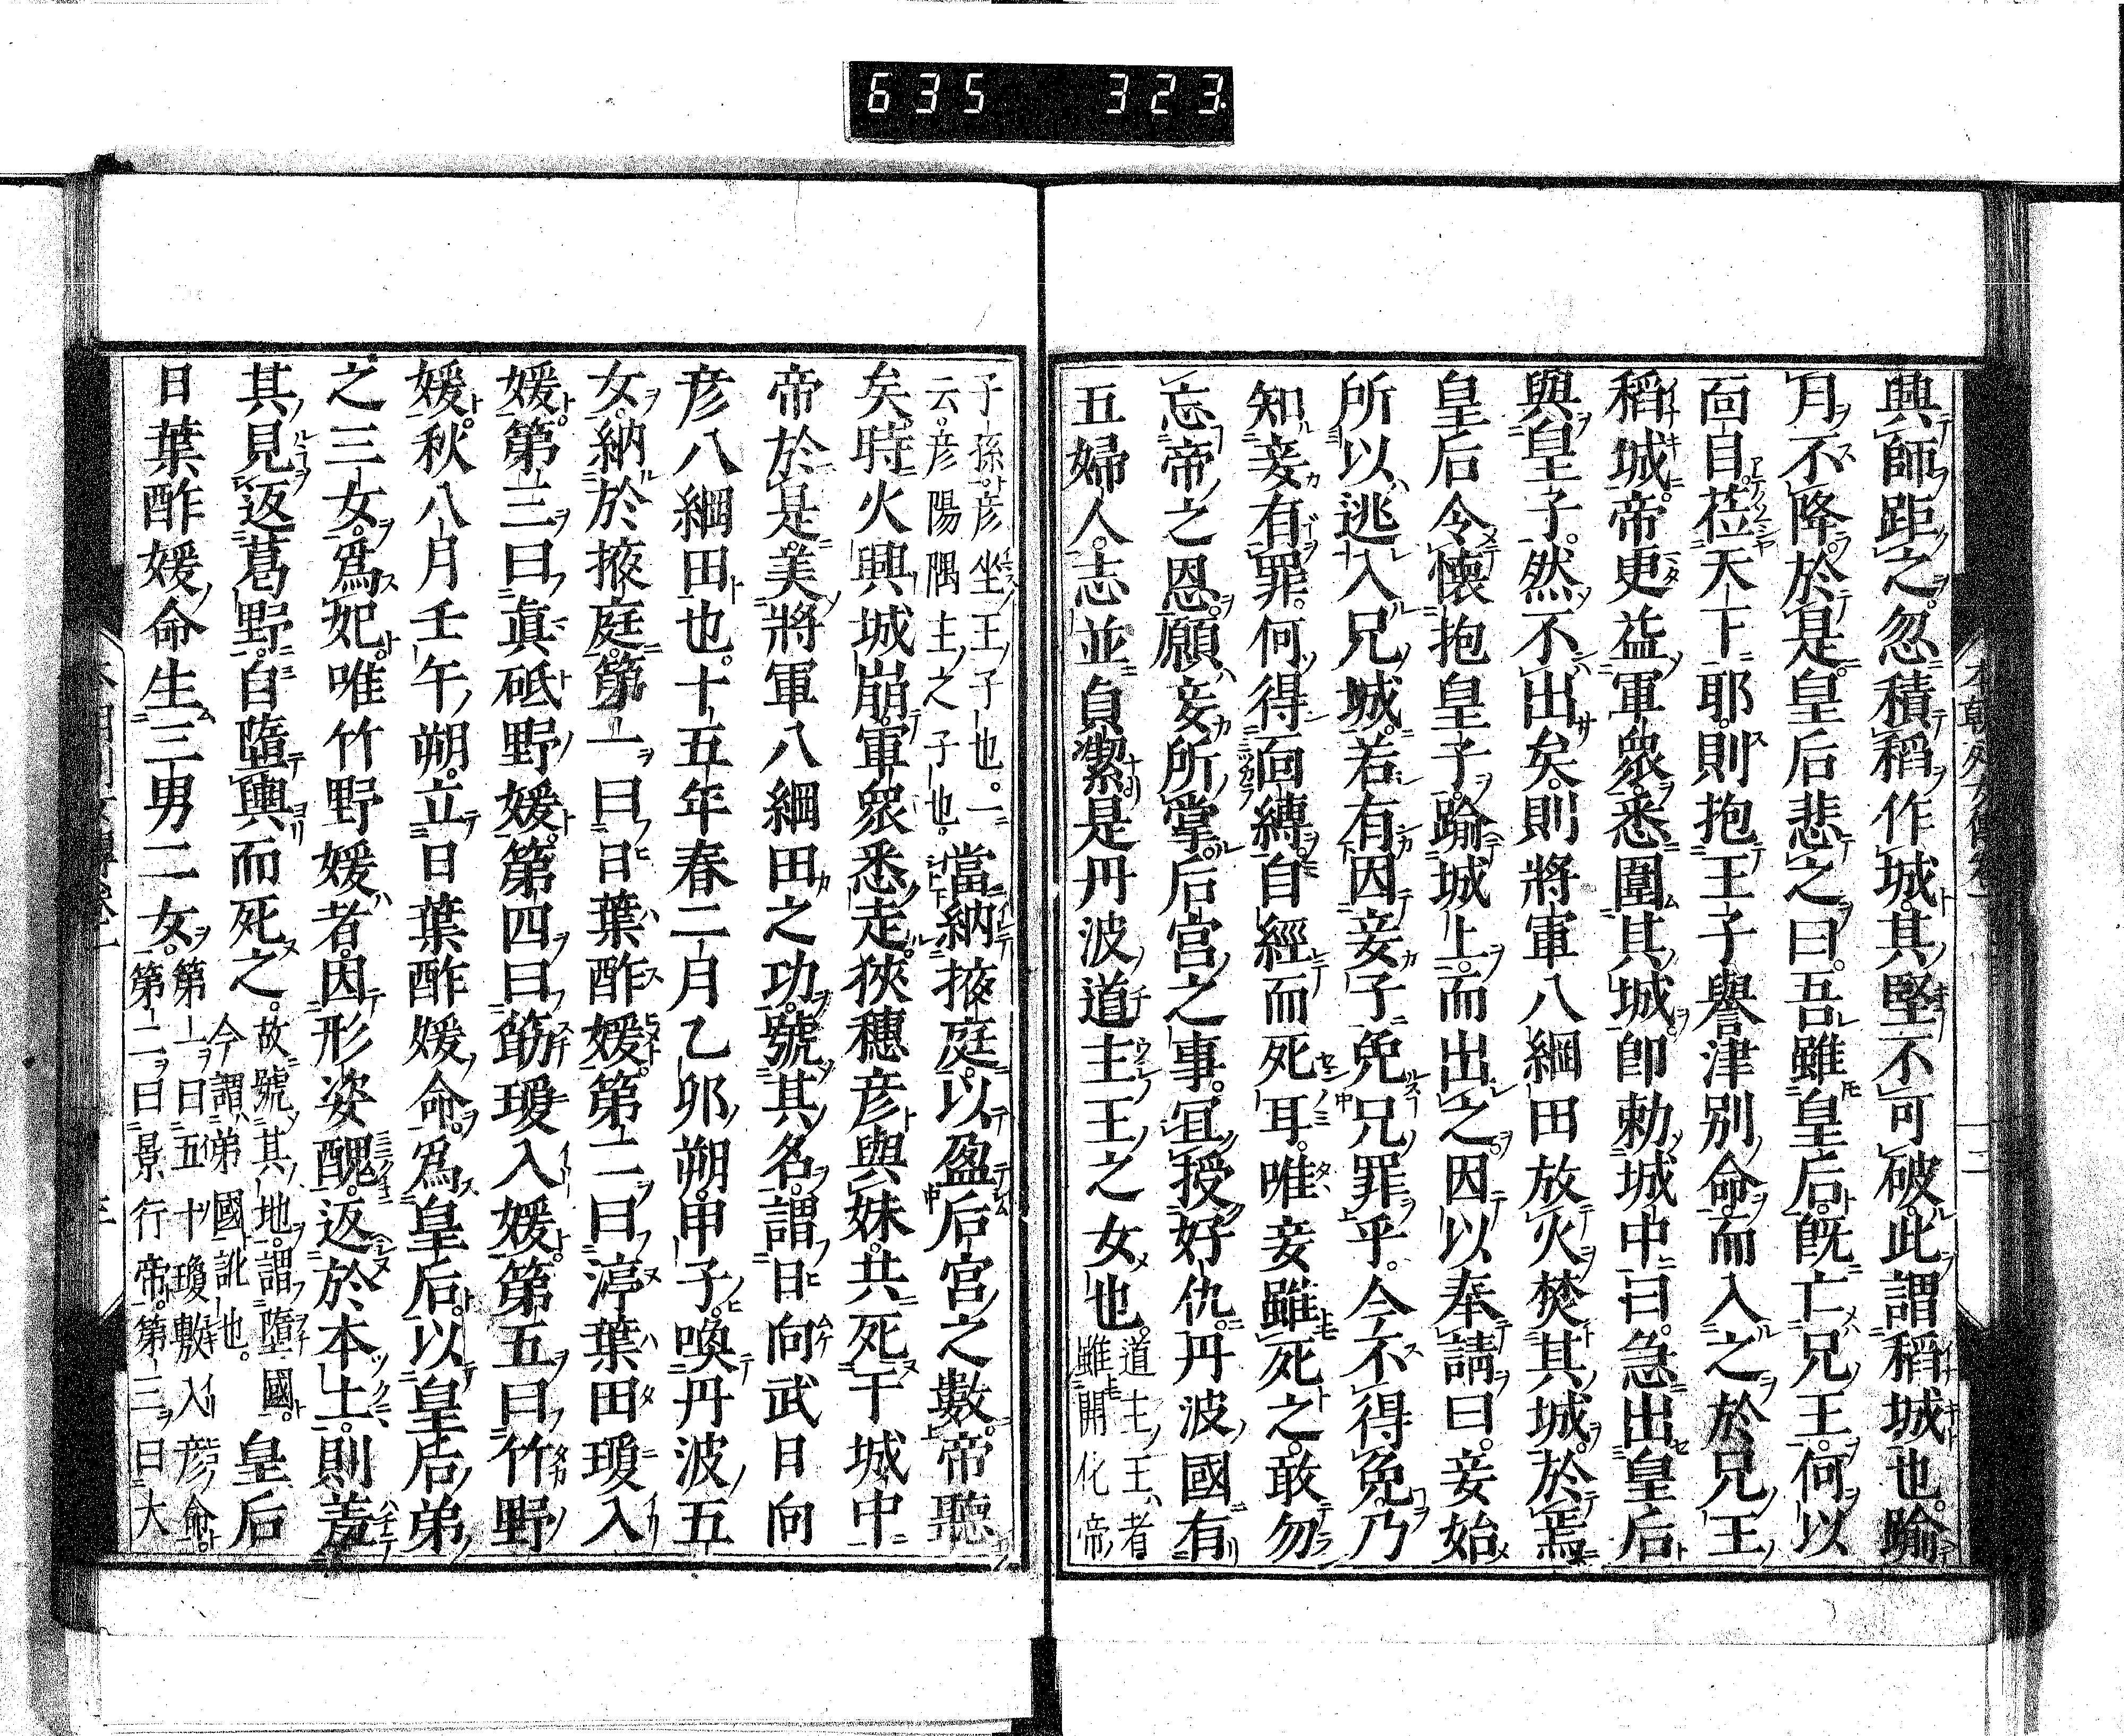 635 323
興師距之忽積稻作城其堅不可破此謂稻城也踰
月不降於是皇后悲之曰吾雖皇后既亡兄王何以
面自莅天下耶則抱王子譽津別命而入之於兄王
稻城帝更益軍衆悉圍其城卽勅城中曰急出皇后
與皇子然不出矣則將軍八綱田放火焚其城於焉
皇后令懷抱皇子踰城上而出之因以奉請曰妾始
所以逃入兄城若有因妾子免兄罪乎今不得免乃
知妾有罪何得面縛自經而死耳唯妾雖死之敢勿
忘帝之恩願妾所掌后宮之事宜授好仇丹波國有
五婦人志並貞潔是丹波道主王之女也
道主王者
雖開化帝
子孫彦坐王子也一
云彦陽隅主之子也
當納掖庭以盈后宮之數帝聽
矣時火興城崩軍衆悉走狹穗彦與妹共死于城中
帝於是美將軍八綱田之功號其名謂日向武日向
彦八綱田也十五年春二月乙卯朔甲子喚丹波五
女納於掖庭第一曰日葉酢媛第二曰渟葉田瓊入
媛第三曰眞砥野媛第四曰筯瓊入媛第五曰竹野
媛秋八月壬午朔立日葉酢媛命爲皇后以皇后弟
之三女爲妃唯竹野媛者因形姿醜返於本土則羞
其見返葛野自墮輿而死之
故號其地謂墮國
今謂弟國訛也
皇后
日葉酢媛命生三男二女
第一曰五十瓊敷入彦命
第二曰景行帝第三曰大